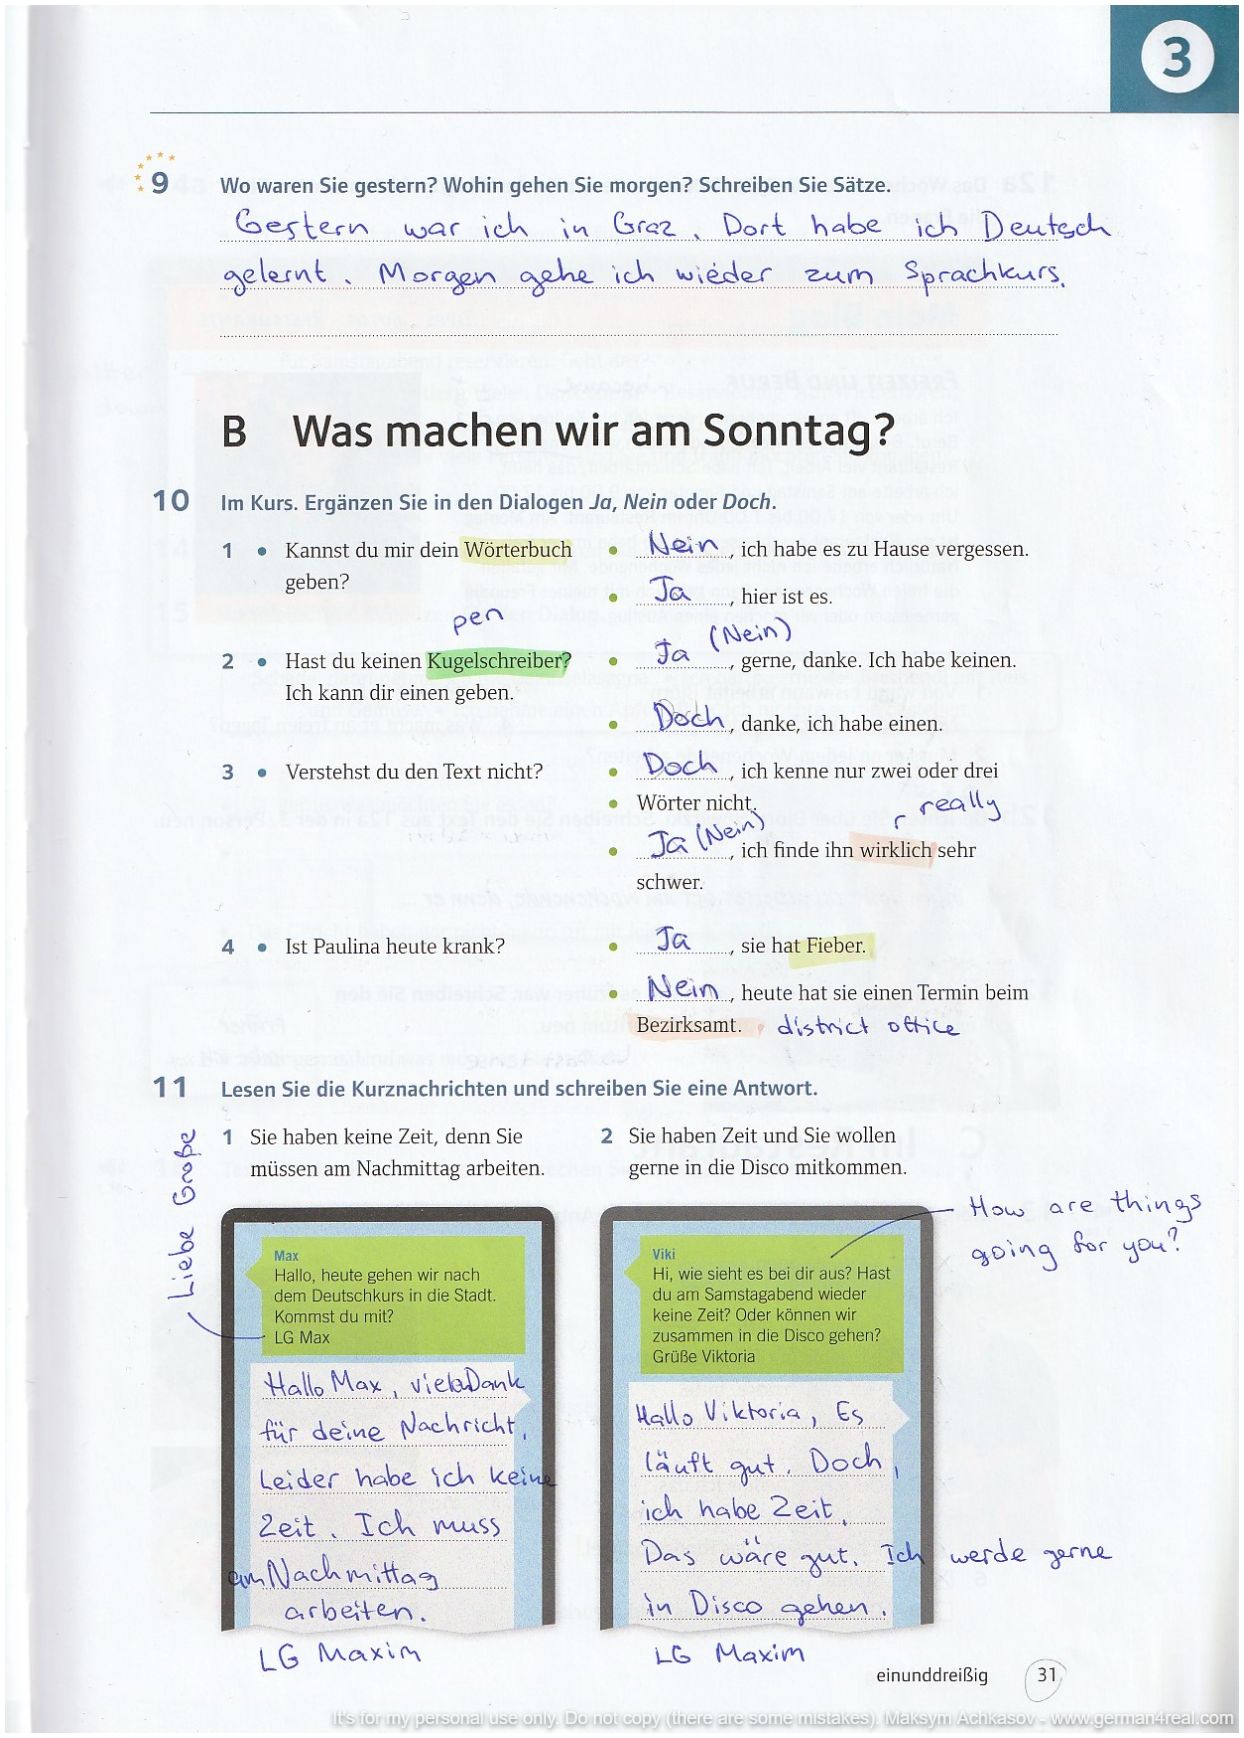 3
9 Wo waren Sie gestern? Wohin gehen Sie morgen? Schreiben Sie Sätze.
Gestern war ich in Graz. Dort habe ich Deutsch
gelernt. Morgen gehe ich wieder zum Sprachkurs.
B Was machen wir am Sonntag?
10 Im Kurs. Ergänzen Sie in den Dialogen Ja, Nein oder Doch.
1 • Kannst du mir dein Wörterbuch • Nein, ich habe es zu Hause vergessen.
geben?
• Ja, hier ist es.
pen
(Nein)
2 • Hast du keinen Kugelschreiber? • Ja, gerne, danke. Ich habe keinen.
Ich kann dir einen geben.
• Doch, danke, ich habe einen.
3 • Verstehst du den Text nicht? • Doch, ich kenne nur zwei oder drei
• Wörter nicht.
r really
• Ja (Nein), ich finde ihn wirklich sehr
schwer.
4 • Ist Paulina heute krank? • Ja, sie hat Fieber.
• Nein, heute hat sie einen Termin beim
Bezirksamt. district office
11 Lesen Sie die Kurznachrichten und schreiben Sie eine Antwort.
1 Sie haben keine Zeit, denn Sie
müssen am Nachmittag arbeiten.
Liebe Große
Max
Hallo, heute gehen wir nach
dem Deutschkurs in die Stadt.
Kommst du mit?
LG Max
Hallo Max, vielen Dank
für deine Nachricht.
Leider habe ich keine
Zeit. Ich muss
am Nachmittag
arbeiten.
LG Maxim
2 Sie haben Zeit und Sie wollen
gerne in die Disco mitkommen.
How are things
going for you?
Viki
Hi, wie sieht es bei dir aus? Hast
du am Samstagabend wieder
keine Zeit? Oder können wir
zusammen in die Disco gehen?
Grüße Viktoria
Hallo Viktoria, Es
läuft gut. Doch,
ich habe Zeit.
Das wäre gut. Ich werde gerne
in Disco gehen.
LG Maxim
einunddreißig 31
It's for my personal use only. Do not copy (there are some mistakes). Maksym Achkasov - www.german4real.com